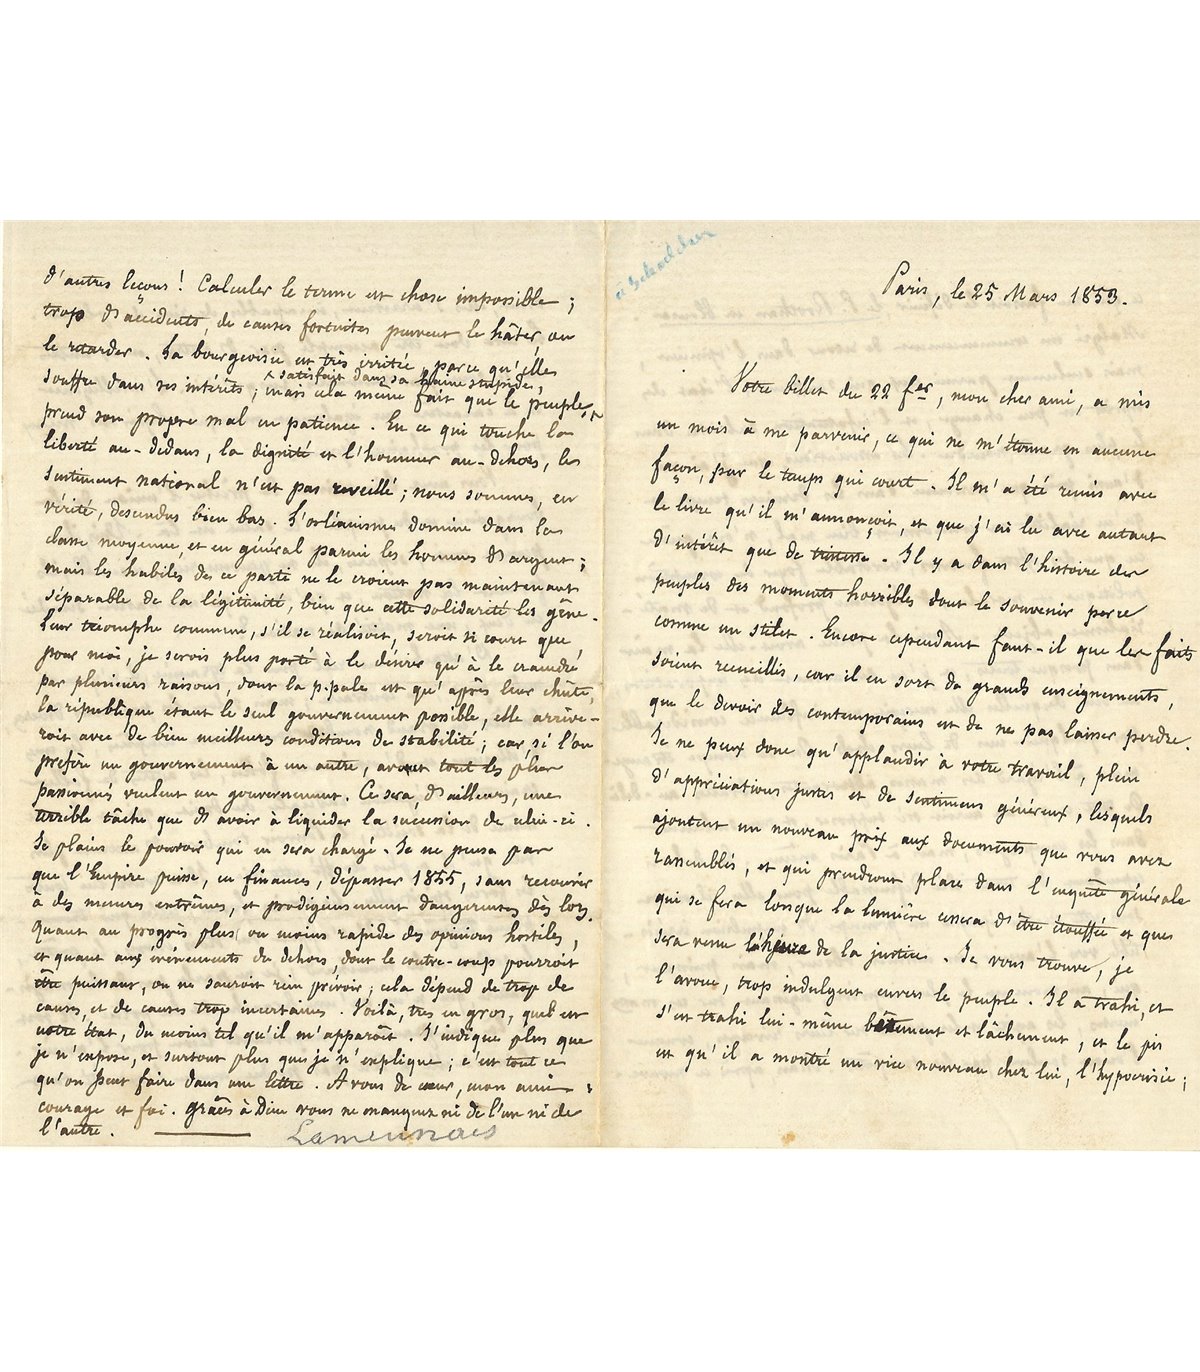 a Schoelcher
Paris, le 25 Mars 1853.
Votre billet du 22 fer, mon cher ami, a mis
un mois à me parvenir, ce qui ne m'étonne en aucune
façon, par le temps qui court. Il m'a été remis avec
le livre qu'il m'annonçoit, et que j'ai lu avec autant
d'intérêt que de tristesse. Il y a dans l'histoire des
peuples des moments horribles dont le souvenir perce
comme un stilet. Encore cependant faut-il que les faits
soient recueillis, car il en sort de grands enseignements,
que le devoir des contemporains est de ne pas laisser perdre.
Je ne peux donc qu'applaudir à votre travail, plein
d'appréciations justes et de sentimens généreux, lesquels
ajoutent un nouveau prix aux documents que vous avez
rassemblés, et qui prendront place dans l'enquête générale
qui se fera lorsque la lumière cessera d'être étouffée et que
sera venue l'heure de la justice. Je vous trouve, je
l'avoue, trop indulgent envers le peuple. Il a trahi, et
s'est trahi lui-même bêtement et lâchement, et le pis
est qu'il a montré un vice nouveau chez lui, l'hypocrisie ;
d'autres leçons ! Calculer le terme est chose impossible ;
trop d'accidents, de causes fortuites peuvent le hâter, ou
le retarder. La bourgeoisie est très irritée, parce qu'elle
satisfait dans sa haine stupide,
souffre dans ses intérêts ; mais cela même fait que le peuple,
prend son propre mal en patience. En ce qui touche la
liberté au-dedans, la dignité et l'honneur au-dehors, le
sentiment national n'est pas reveillé ; nous sommes, en
vérité, descendus bien bas. L'orléanisme domine dans la
classe moyenne, et en général parmi les hommes d'argent ;
mais les habiles de ce parti ne le croient pas maintenant
séparable de la légitimité, bien que cette solidarité les gêne.
Leur triomphe commun, s'il se réalisoit, seroit si court que
pour moi, je serois plus porté à le désirer qu'à le craindre
par plusieurs raisons, dont la p.pale est qu'après leur chûte,
la république étant le seul gouvernement possible, elle arrive-
roit avec de bien meilleurs conditions de stabilité ; car, si l'on
préfère un gouvernement à un autre, avant tout les plus
passionnés veulent un gouvernement. Ce sera, d'ailleurs, une
terrible tâche que d'avoir à liquider la succession de celui-ci.
Je plains le pouvoir qui en sera chargé. Je ne pense pas
que l'Empire puisse, en finances, dépasser 1855, sans recourir
à des mesures extrêmes, et prodigieusement dangereuses dès lors.
Quant au progrès plus ou moins rapide des opinions hostiles,
et quant aux événements du dehors, dont le contre-coup pourroit
être puissant, on ne sauroit rien prévoir ; cela dépend de trop de
causes, et de causes trop incertaines. Voilà, très en gros, quel est
notre état, du moins tel qu'il m'apparoît. J'indique plus que
je n'expose, et surtout plus que je n'explique ; c'est tout ce
qu'on peut faire dans une lettre. A vous de cœur, mon ami :
courage et foi. grâces à Dieu vous ne manquez ni de l'un ni de
l'autre.
Lamennais